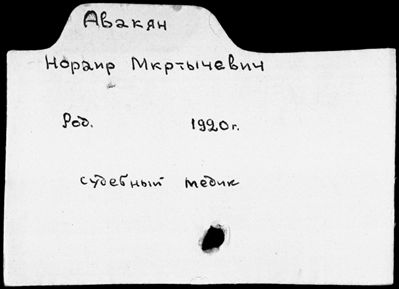 Авакян
Нораир Мкртычевич
Род. 1920 г.
судебный медик